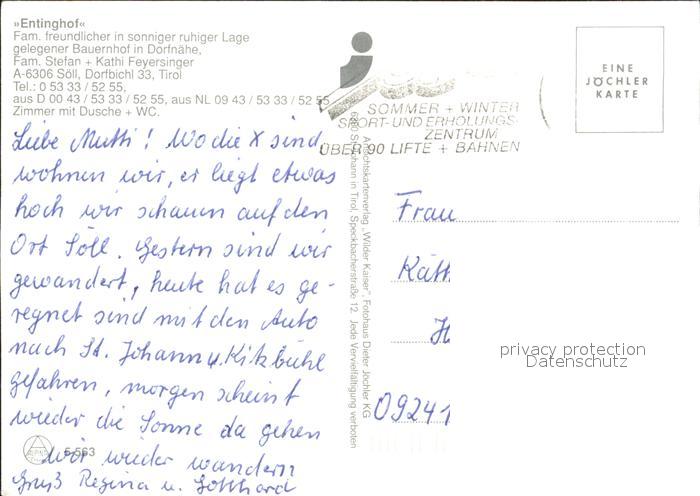 »Entinghof«
Fam. freundlicher in sonniger ruhiger Lage
gelegener Bauernhof in Dorfnähe,
Fam. Stefan + Kathi Feyersinger
A-6306 Söll, Dorfbichl 33, Tirol
Tel.: 0 53 33 / 52 55,
aus D 00 43 / 53 33 / 52 55, aus NL 09 43 / 53 33 / 52 55
Zimmer mit Dusche + WC.
Liebe Mutti! Wo die X sind,
wohnen wir, er liegt etwas
hoch wir schauen auf den
Ort Söll. Gestern sind wir
gewandert, heute hat es ge-
regnet sind mit den Auto
nach St. Johann u. Kitzbühl
gefahren, morgen scheint
wieder die Sonne da gehen
wir wieder wandern
Gruß Regina u. Gotthard
6-563
SOMMER + WINTER
SPORT- UND ERHOLUNGS-
ZENTRUM
ÜBER 90 LIFTE + BAHNEN
Ansichtskartenverlag „Wilder Kaiser", Fotohaus Dieter Jöchler KG
6380 St. Johann in Tirol, Speckbacherstraße 12. Jede Vervielfältigung verboten
EINE
JÖCHLER
KARTE
Frau
Käth
0924
privacy protection
Datenschutz